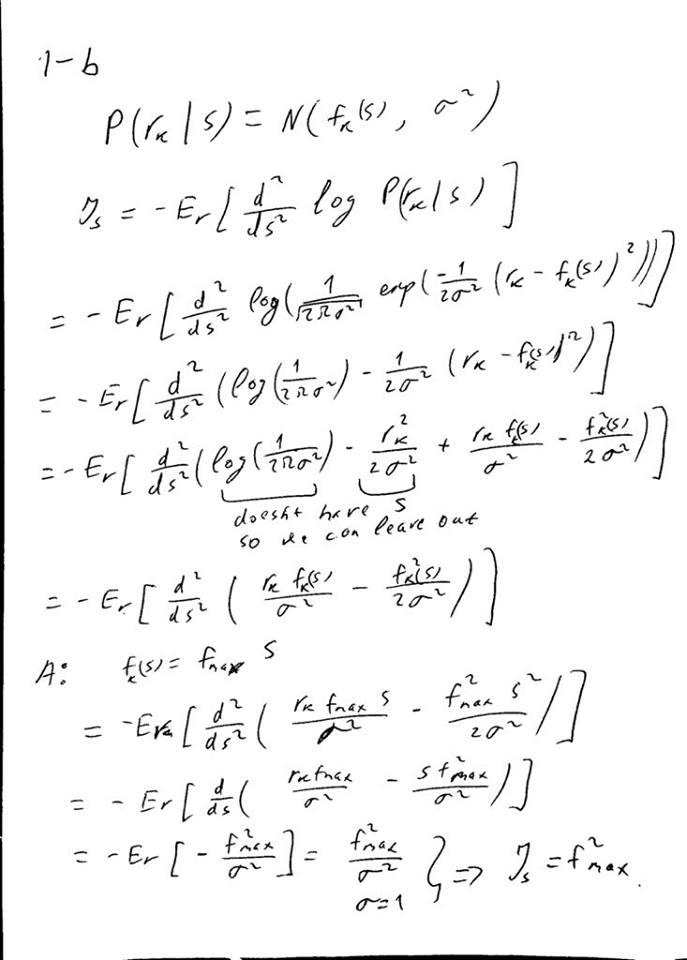 1-b
P(rₖ | s) = N( fₖ(s), σ² )
Jₛ = - Eᵣ[ d²/ds² log P(rₖ|s) ]
= - Eᵣ[ d²/ds² log( 1/√(2πσ²) exp( -1/2σ² (rₖ - fₖ(s))² )) ]
= - Eᵣ[ d²/ds² (log(1/2πσ²) - 1/2σ² (rₖ - fₖ(s))²) ]
= - Eᵣ[ d²/ds² ( log(1/2πσ²) - rₖ²/2σ² + rₖ fₖ(s)/σ² - fₖ²(s)/2σ² ) ]
doesn't have s
so we can leave out
= - Eᵣ[ d²/ds² ( rₖ fₖ(s)/σ² - fₖ²(s)/2σ² ) ]
A: fₖ(s) = fmax s
= - Eᵣ[ d²/ds² ( rₖ fmax s/σ² - f²max s²/2σ² ) ]
= - Eᵣ[ d/ds ( rₖ fmax/σ² - s f²max/σ² ) ]
= - Eᵣ[ - f²max/σ² ] = f²max/σ² } => Jₛ = f²max.
σ=1